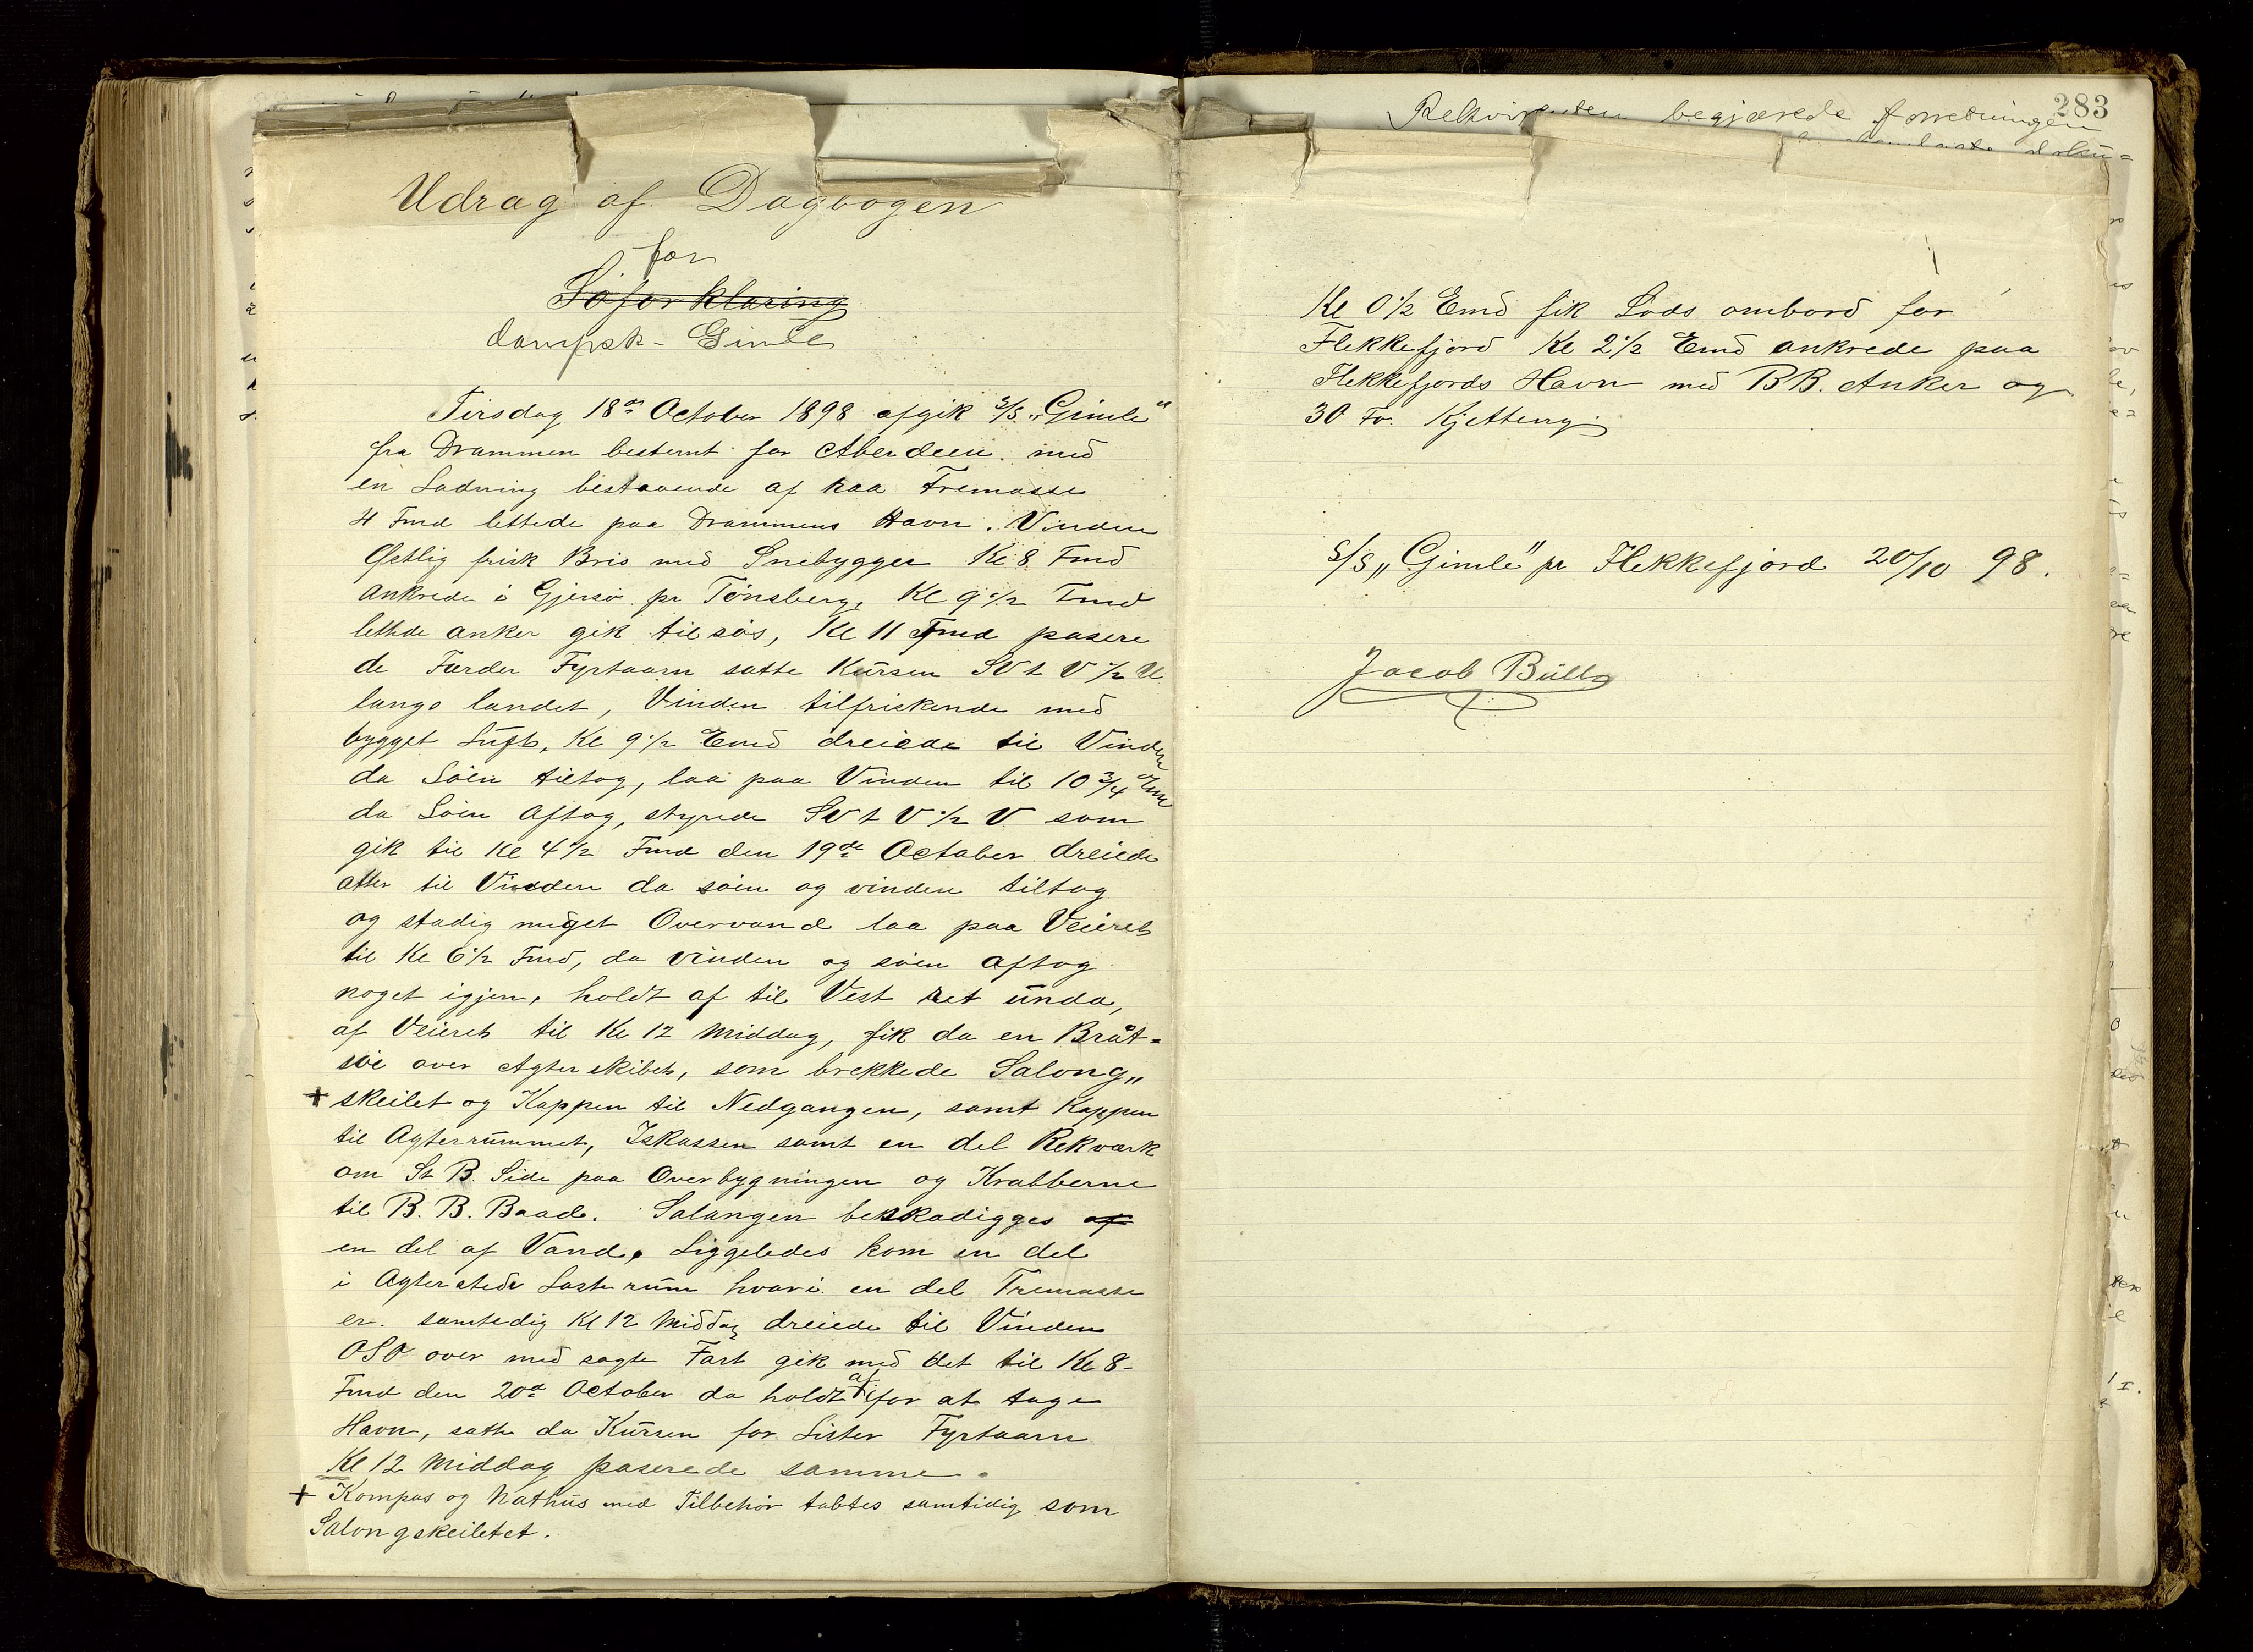 Udrag af Dagbogen
for
Søforklaring
dampsk- Gimle
Tirsdag 18de October 1898 afgik S/S. „Gimle"
fra Drammen bestemt for Aberdeen. med
en Ladning bestaaende af kaa Fremasse
4 Fmd lettede paa Drammens Havn. Vinden
Østlig frisk Bris med Snebygger Kl 8 Fmd
ankrede i Gjersø pr Tønsberg, Kl 9 1/2 Fmd
lettede anker gik tilsøs, Kl 11 Fmd pasere
de Færder Fyrtaarn satte Kursen SV t V 1/2 V
langs landet, Vinden tilfriskende med
bygget Luft, Kl 9 1/2 Emd dreiede til Vinden
da Søen tiltog, laa paa Vinden til 10 3/4 Emd
da Søen aftog, styrede SV t V 1/2 V som
gik til Kl 4 1/2 Fmd den 19de October dreiede
atter til Vinden da søen og vinden tiltog
og stadig meget Overvand laa paa Veieret
til Kl 6 1/2 Fmd, da vinden og søen aftog
noget igjen, holdt af til Vest ret unda,
af Veieret til Kl 12 Middag, fik da en Bråt-
søe over Agterskibet, som brekkede Salong„
+ skeilet og Kappen til Nedgangen, samt Kappen
til Agterrummet, Iskassen samt en del Rekværk
om St B. Side paa Overbygningen og Krabberne
til B. B. Baad. Salangen beskadigges af
en del af Vand, Liggeledes kom en del
i Agterstede Lasterum hvori en del Tremasse
er. samtedig Kl 12 Middag dreiede til Vinden
OSO over med sagte Fart gik med det til Kl 8-
Fmd den 20de October da holdt af for at tage
Havn, satte da Kursen for Lister Fyrtaarn
Kl 12 Middag paserede samme.
+ Kompas og Nathus med Tilbehør tabtes samtidig som
Salongskeiletet.
283
Rekvirenten begjærede forretningen
Kl 0 1/2 Emd fik Lods ombord for
Flekkefjord Kl 2 1/2 Emd ankrede paa
Flekkefjords Havn med BB. Anker og
30 Fv. Kjetteng
S/S „Gimle" pr Flekkefjord 20/10 98.
Jacob Bull